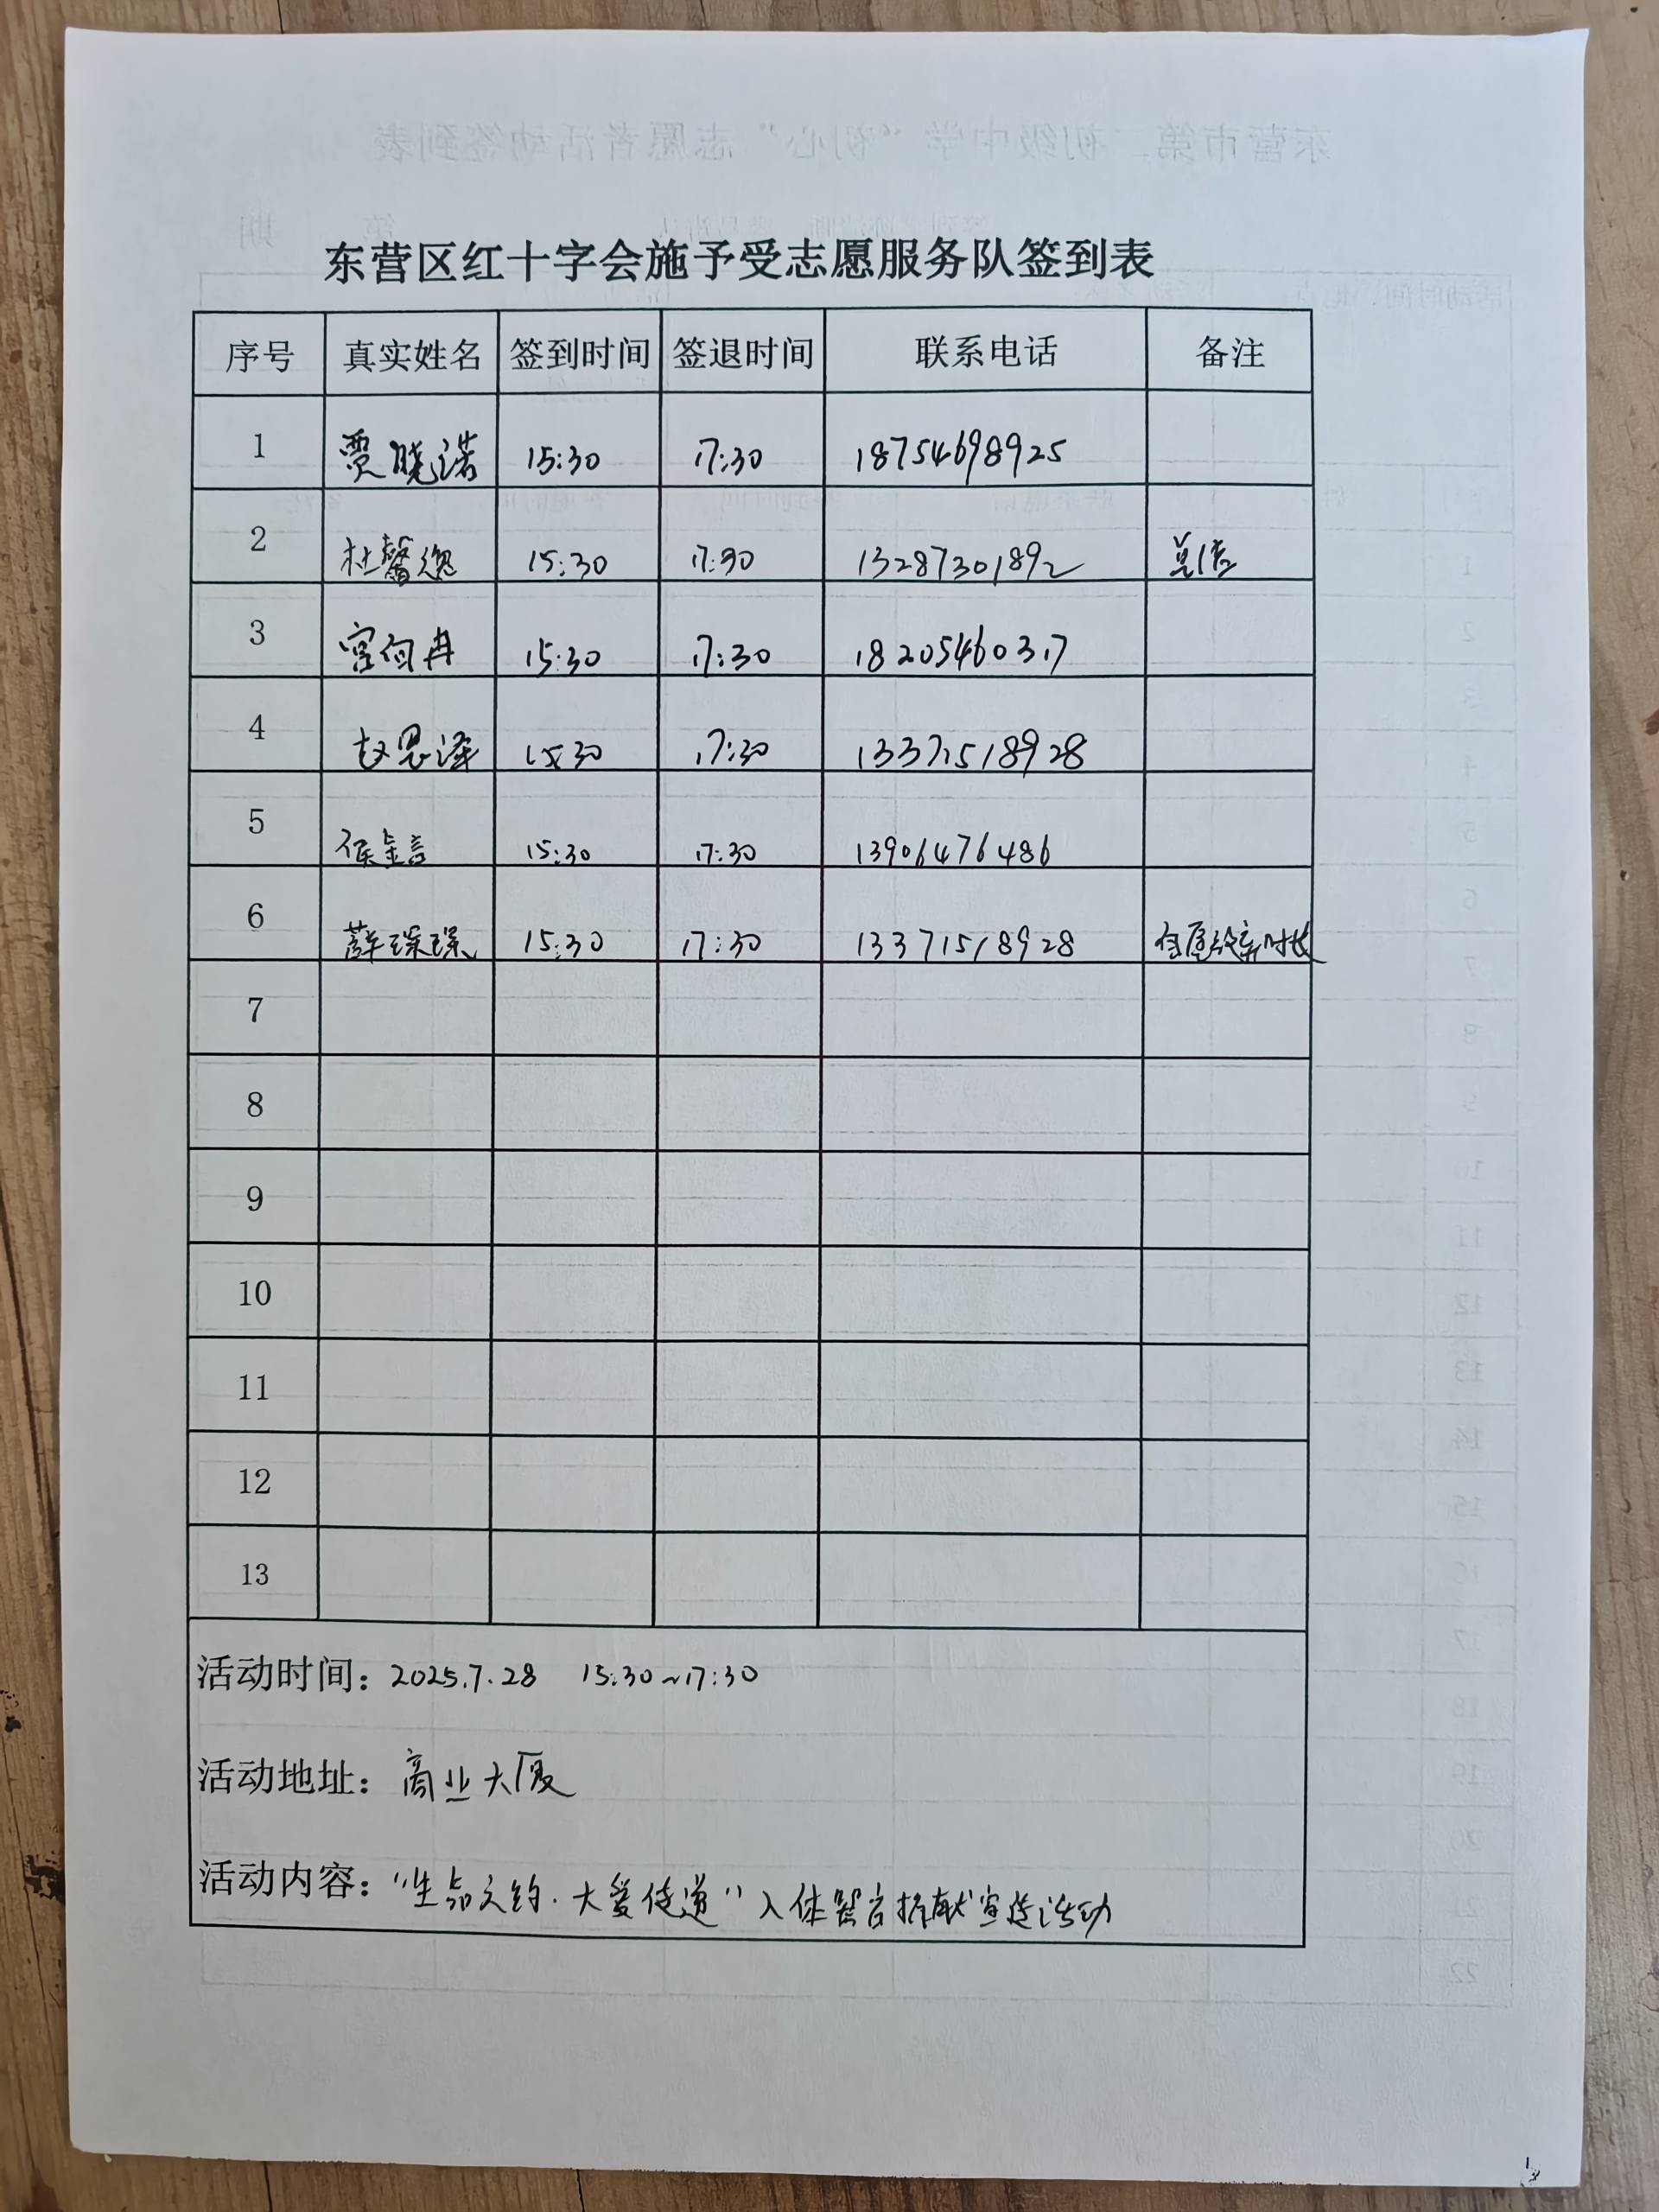 东营区红十字会施予受志愿服务队签到表
序号 真实姓名 签到时间 签退时间 联系电话 备注
1 贾晓诺 15:30 17:30 18754698925
2 杜馨逸 15:30 17:30 13287301892
3 宫向冉 15:30 17:30 18205460317
4 赵恩泽 15:30 17:30 13371518928
5 侯金言 15:30 17:30 13906476486
6 薛琛琛 15:30 17:30 13371518928 自愿放弃时长
7
8
9
10
11
12
13
活动时间：2025.7.28 15:30~17:30
活动地址：商业大厦
活动内容：“生命之约·大爱传递”人体器官捐献宣传活动
东营市第二初级中学“初心”志愿者活动签到表
第 期